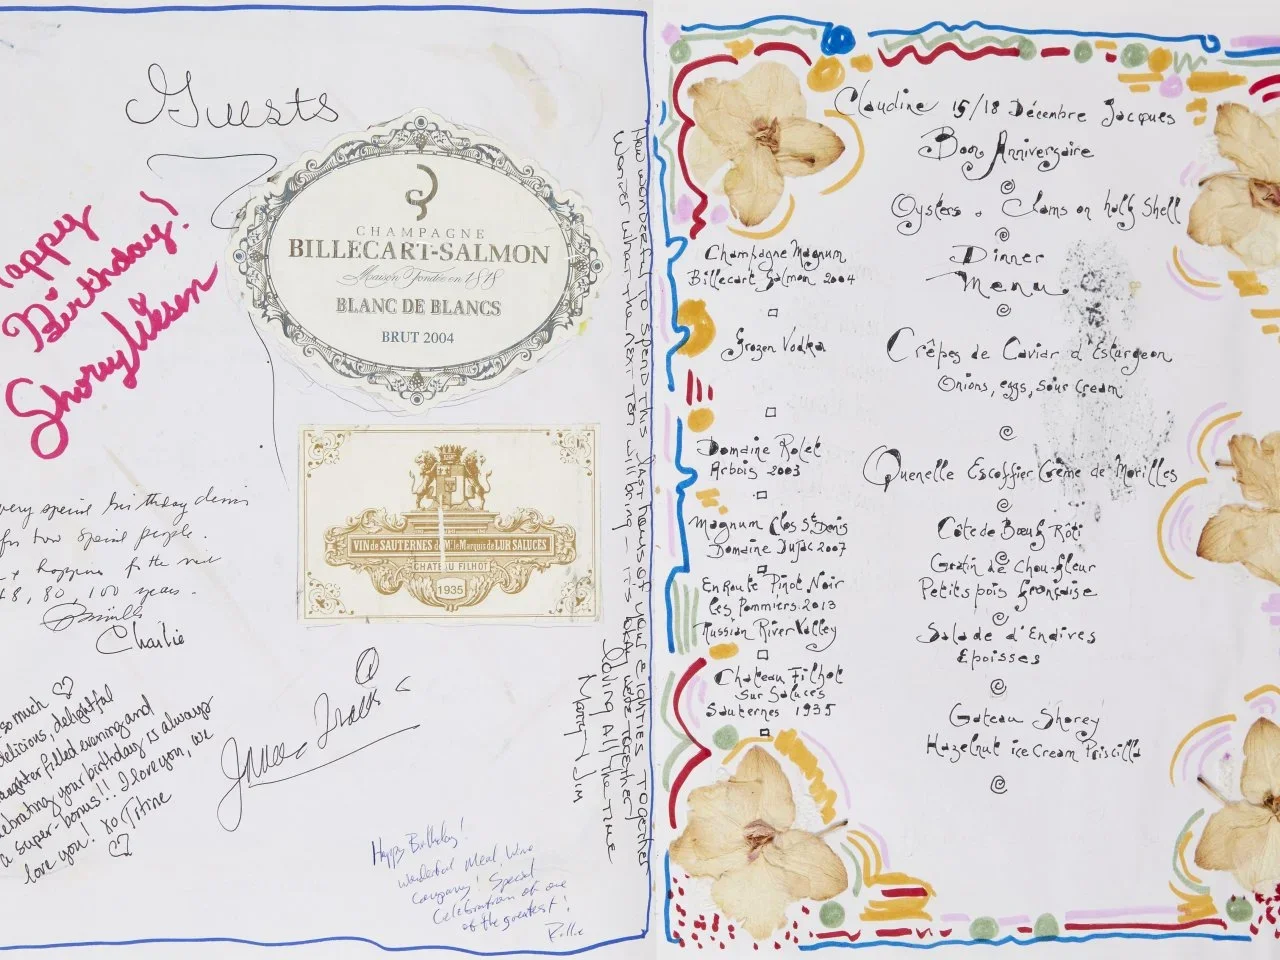 Guests
Happy
Birthday!
Shorey Wesen
CHAMPAGNE
BILLECART-SALMON
Maison Fondée en 1818
BLANC DE BLANCS
BRUT 2004
VIN de SAUTERNES de Mr le Marquis de LUR SALUCES
CHATEAU FILHOT
1935
very special birthday
for two special people.
+ hopping for the next
80, 100 years.
Charlie
so much
delicious, delightful
laughter filled evening and
celebrating your birthday is always
a super-bonus!! I love you, we
love you! xo Titine
Happy Birthday!
Wonderful Meal, Wine
company! Special
Celebration of one
of the greatest!
Rollie
How wonderful to spend this last hours of your eighties together
Wonder what the next ten will bring – it's why we're together
loving all the time
Marry Jim
Claudine 15/18 Décembre Jacques
Bon Anniversaire
Oysters . Clams on half Shell
Dinner
Menu
Crêpes de Caviar d'Esturgeon
Onions, eggs, sour cream
Quenelle Escoffier Crème de Morilles
Côte de Bœuf Rôti
Gratin de Chou-fleur
Petits pois française
Salade d'Endives
Epoisses
Gateau Shorey
Hazelnut ice Cream Priscilla
Champagne Magnum
Billecart Salmon 2004
Frozen Vodka
Domaine Rolet
Arbois 2003
Magnum Clos St Denis
Domaine Dujac 2007
En Route Pinot Noir
Les Pommiers 2013
Russian River Valley
Chateau Filhot
Sur Saluces
Sauternes 1935